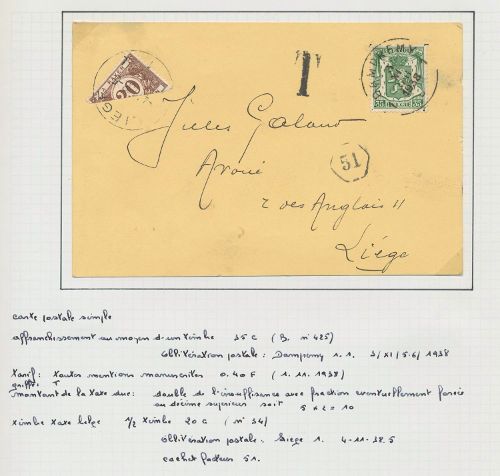 T
20
LIEGE
35 BELGIQUE 35
Jules Galand
Avoué
2 des Anglais 11
Liége
51
carte postale simple
affranchissement au moyen d'un timbre 35 C (B. n° 425)
oblitération postale : Dampremy 1.1. 3/XI/5.6/1938
tarif : toutes mentions manuscrites 0.40 F (1.11.1938)
griffe T
montant de la taxe due : double de l'insuffisance avec fraction éventuellement forcée
au décime supérieur soit 5 x 2 = 10
timbre taxe belge 1/2 timbre 20 c (n° 34)
oblitération postale : Liege 1. 4-11-38.5
cachet facteur 51.